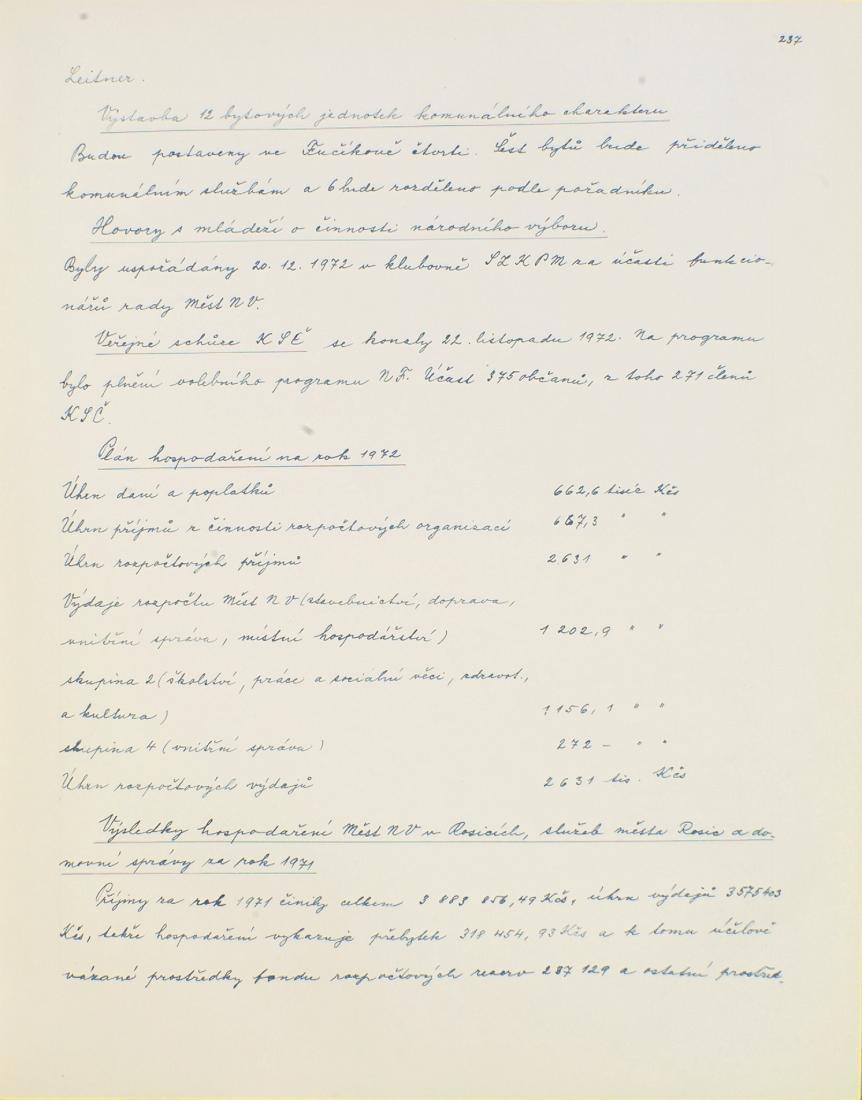 237
Leitner.
Výstavba 12 bytových jednotek komunálního charakteru
Budou postaveny ve Fučíkově čtvrti. Šest bytů bude přiděleno
komunálním službám a 6 bude rozděleno podle pořadníku.
Hovory s mládeží o činnosti národního výboru.
Byly uspořádány 20. 12. 1972 v klubovně SZKPM za účasti funkcio-
nářů rady Měst NV.
Veřejné schůze KSČ se konaly 22. listopadu 1972. Na programu
bylo plnění volebního programu NF. Účast 375 občanů, z toho 271 členů
KSČ.
Plán hospodaření na rok 1972
Úhrn daní a poplatků 662,6 tisíc Kčs
Úhrn příjmů z činnosti rozpočtových organizací 687,3 " "
Úhrn rozpočtových příjmů 2.631 " "
Výdaje rozpočtu Měst NV (stavebnictví, doprava,
vnitřní správa, místní hospodářství) 1 202,9 " "
skupina 2 (školství, práce a sociální věci, zdravot.,
a kultura) 1 156,1 " "
skupina 4 (vnitřní správa) 272 – " "
Úhrn rozpočtových výdajů 2 631 tis. Kčs
Výsledky hospodaření Měst NV v Rosicích, služeb města Rosic a do-
movní správy za rok 1971
Příjmy za rok 1971 činily celkem 3 883 856,49 Kčs, úhrn výdajů 3575403
Kčs, takže hospodaření vykazuje přebytek 318 454,93 Kčs a k tomu účelově
vázané prostředky fondu rozpočtových rezerv 287 129 a ostatní prostřed-